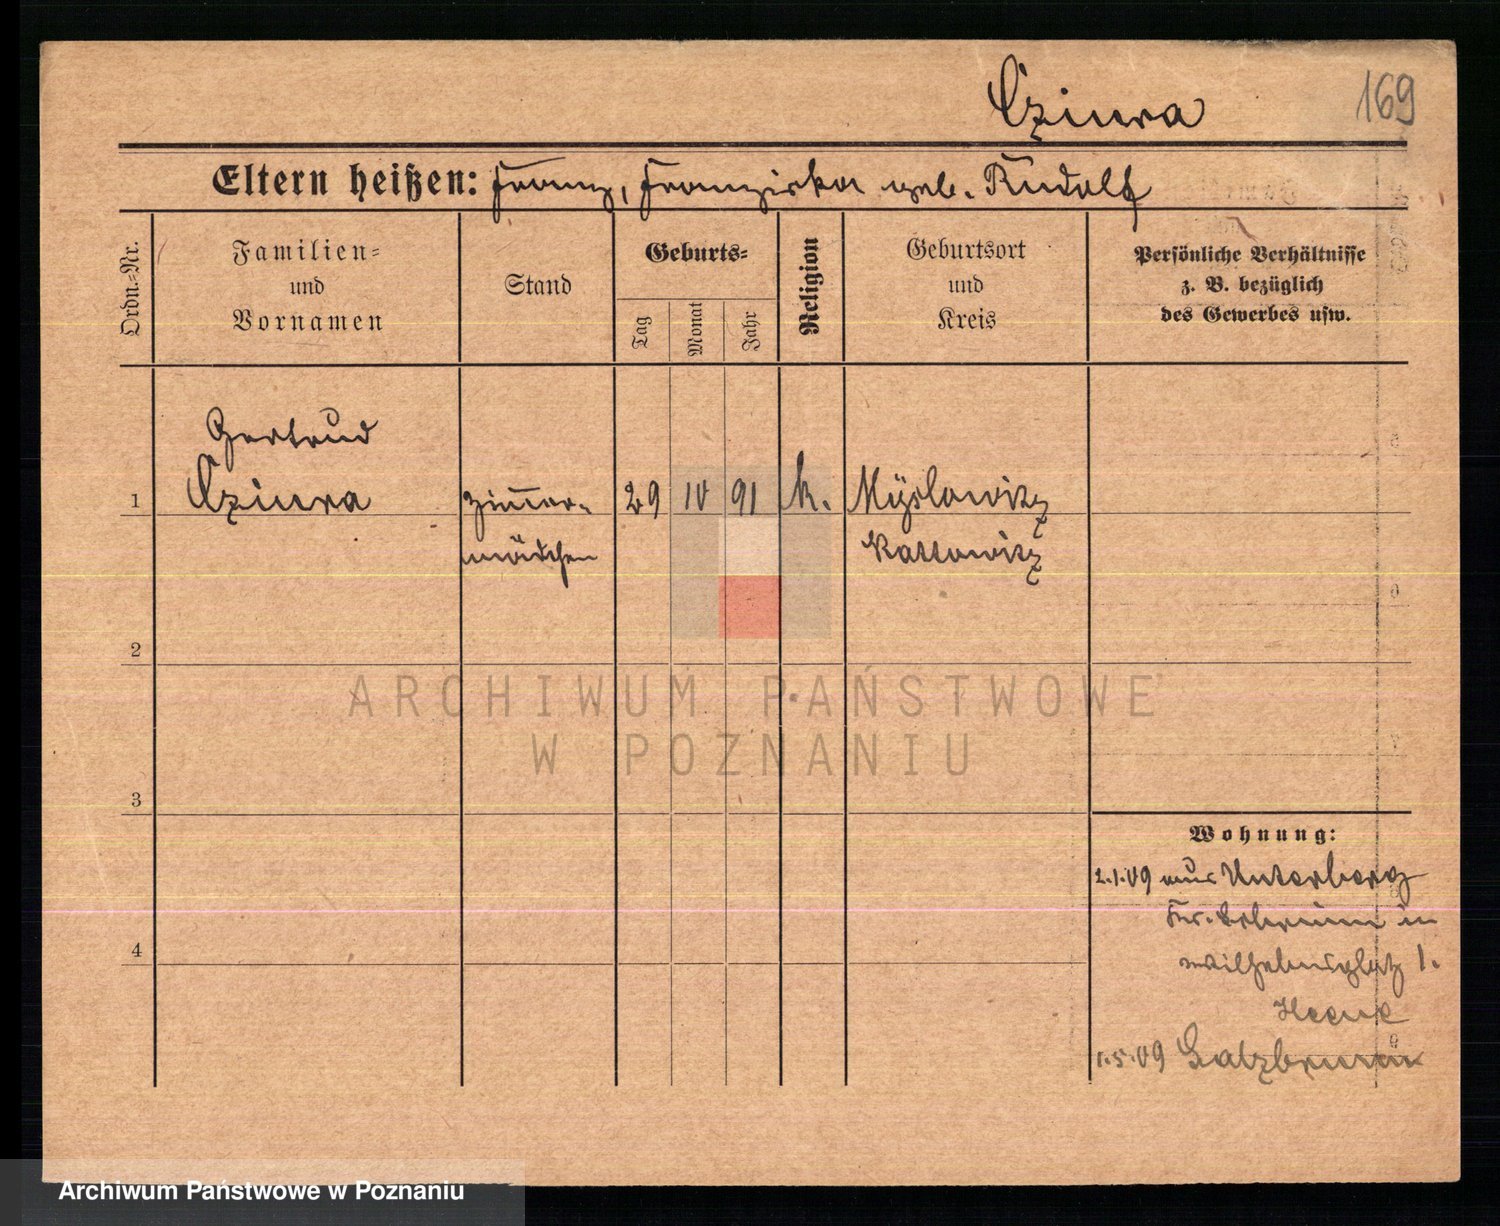 Cziura
169
Eltern heißen: Franz, Franziska geb. Rudolf
Ordn.-Nr.
Familien-
und
Vornamen
Stand
Geburts-
Tag
Monat
Jahr
Religion
Geburtsort
und
Kreis
Persönliche Verhältnisse
z. B. bezüglich
des Gewerbes usw.
Gertrud
1 Cziura Zimer- 29 10 91 k. Myslowitz
mädchen Kattowitz
2
ARCHIWUM PAŃSTWOWE
W POZNANIU
3
Wohnung:
2.1.09 aus Unterberg
in
4
Wilhelmsplatz 1.
1.5.09 Salzbrunn
Archiwum Państwowe w Poznaniu